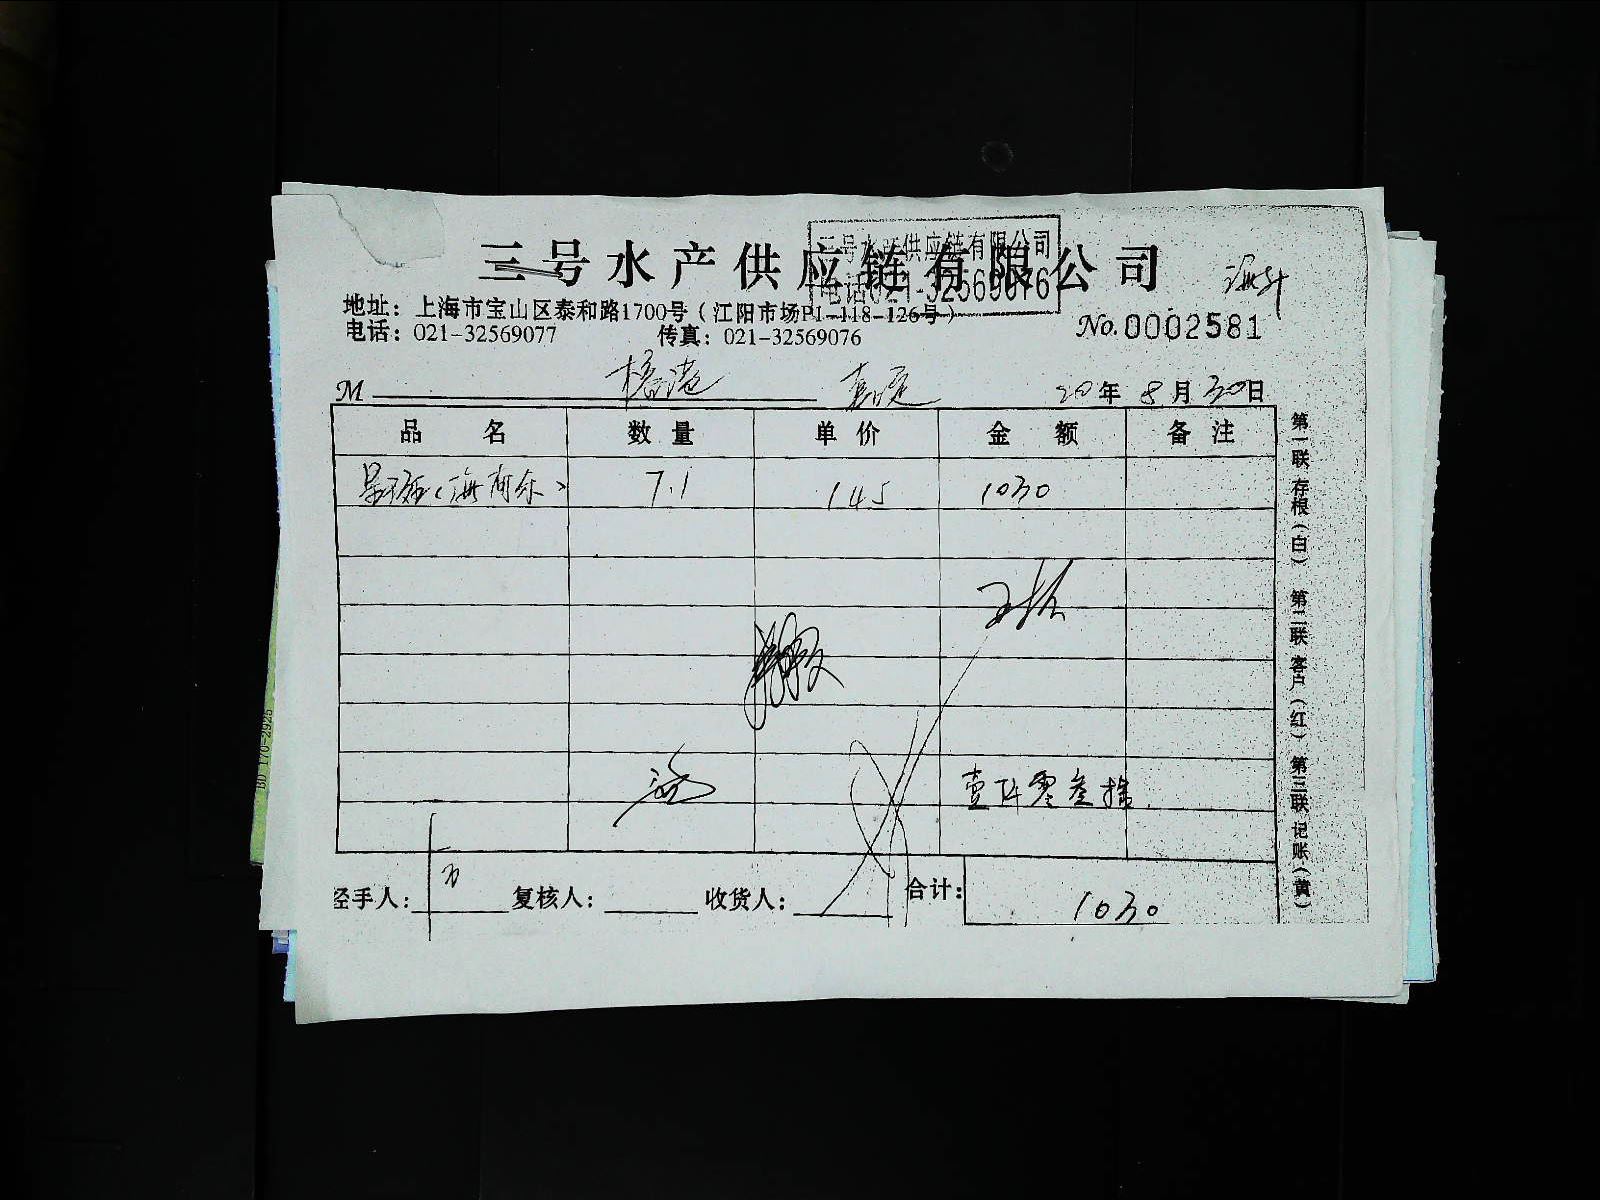 三号水产供应链有限公司
三号水产供应链有限公司
电话021-32569076
地址：上海市宝山区泰和路1700号（江阳市场P1-118-126号）
电话：021-32569077 传真：021-32569076
No.0002581
M 20年8月30日
品名 数量 单价 金额 备注
7.1 145 1030
壹仟零叁拾
经手人： 复核人： 收货人： 合计：1030
第一联 存根（白） 第二联 客户（红） 第三联 记账（黄）
BD 170-2925